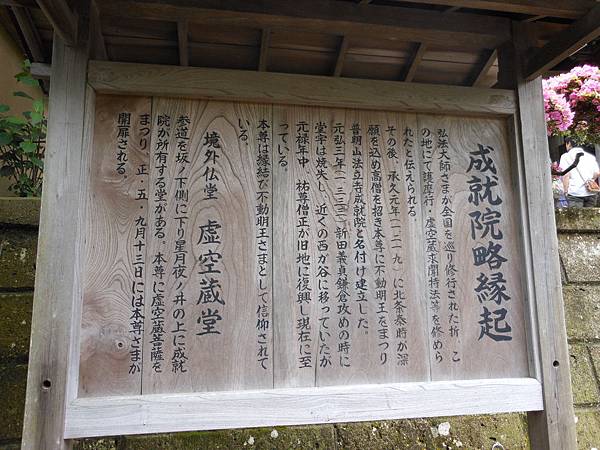 成就院略縁起
弘法大師さまが全国を巡り修行された折、こ
の地にて護摩行・虚空蔵求聞持法等を修めら
れたと伝えられる。
その後、承久元年(一二一九)に北条泰時が深
願を込め高僧を招き本尊に不動明王をまつり
普明山法立寺成就院と名付け建立した。
元弘三年(一三三三)新田義貞鎌倉攻めの時に
堂宇は焼失し、近くの西が谷に移っていたが
元禄年中、祐尊僧正が旧地に復興し現在に至
っている。
本尊は縁結び不動明王さまとして信仰されて
いる。
境外仏堂 虚空蔵堂
参道を坂ノ下側に下り星月夜ノ井の上に成就
院が所有する堂がある。本尊に虚空蔵菩薩を
まつり 正、五、九月十三日には本尊さまが
開扉される。